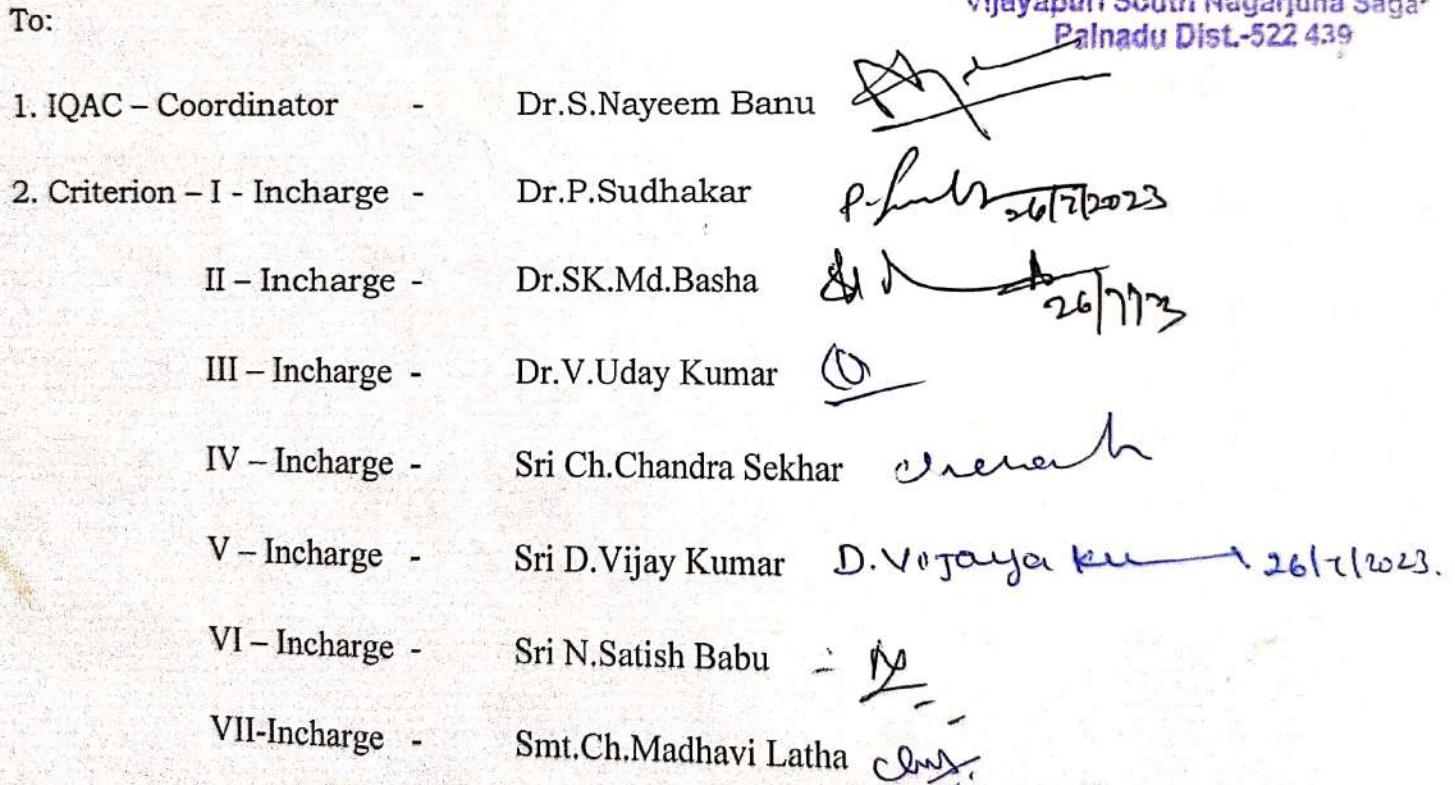 Vijayapuri South Nagarjuna Sagar
Palnadu Dist.-522 439
To:
1. IQAC – Coordinator - Dr.S.Nayeem Banu
2. Criterion – I - Incharge - Dr.P.Sudhakar 26/7/2023
II – Incharge - Dr.SK.Md.Basha 26/7/23
III – Incharge - Dr.V.Uday Kumar
IV – Incharge - Sri Ch.Chandra Sekhar
V – Incharge - Sri D.Vijay Kumar D.Vijaya 26/7/2023.
VI – Incharge - Sri N.Satish Babu
VII-Incharge - Smt.Ch.Madhavi Latha